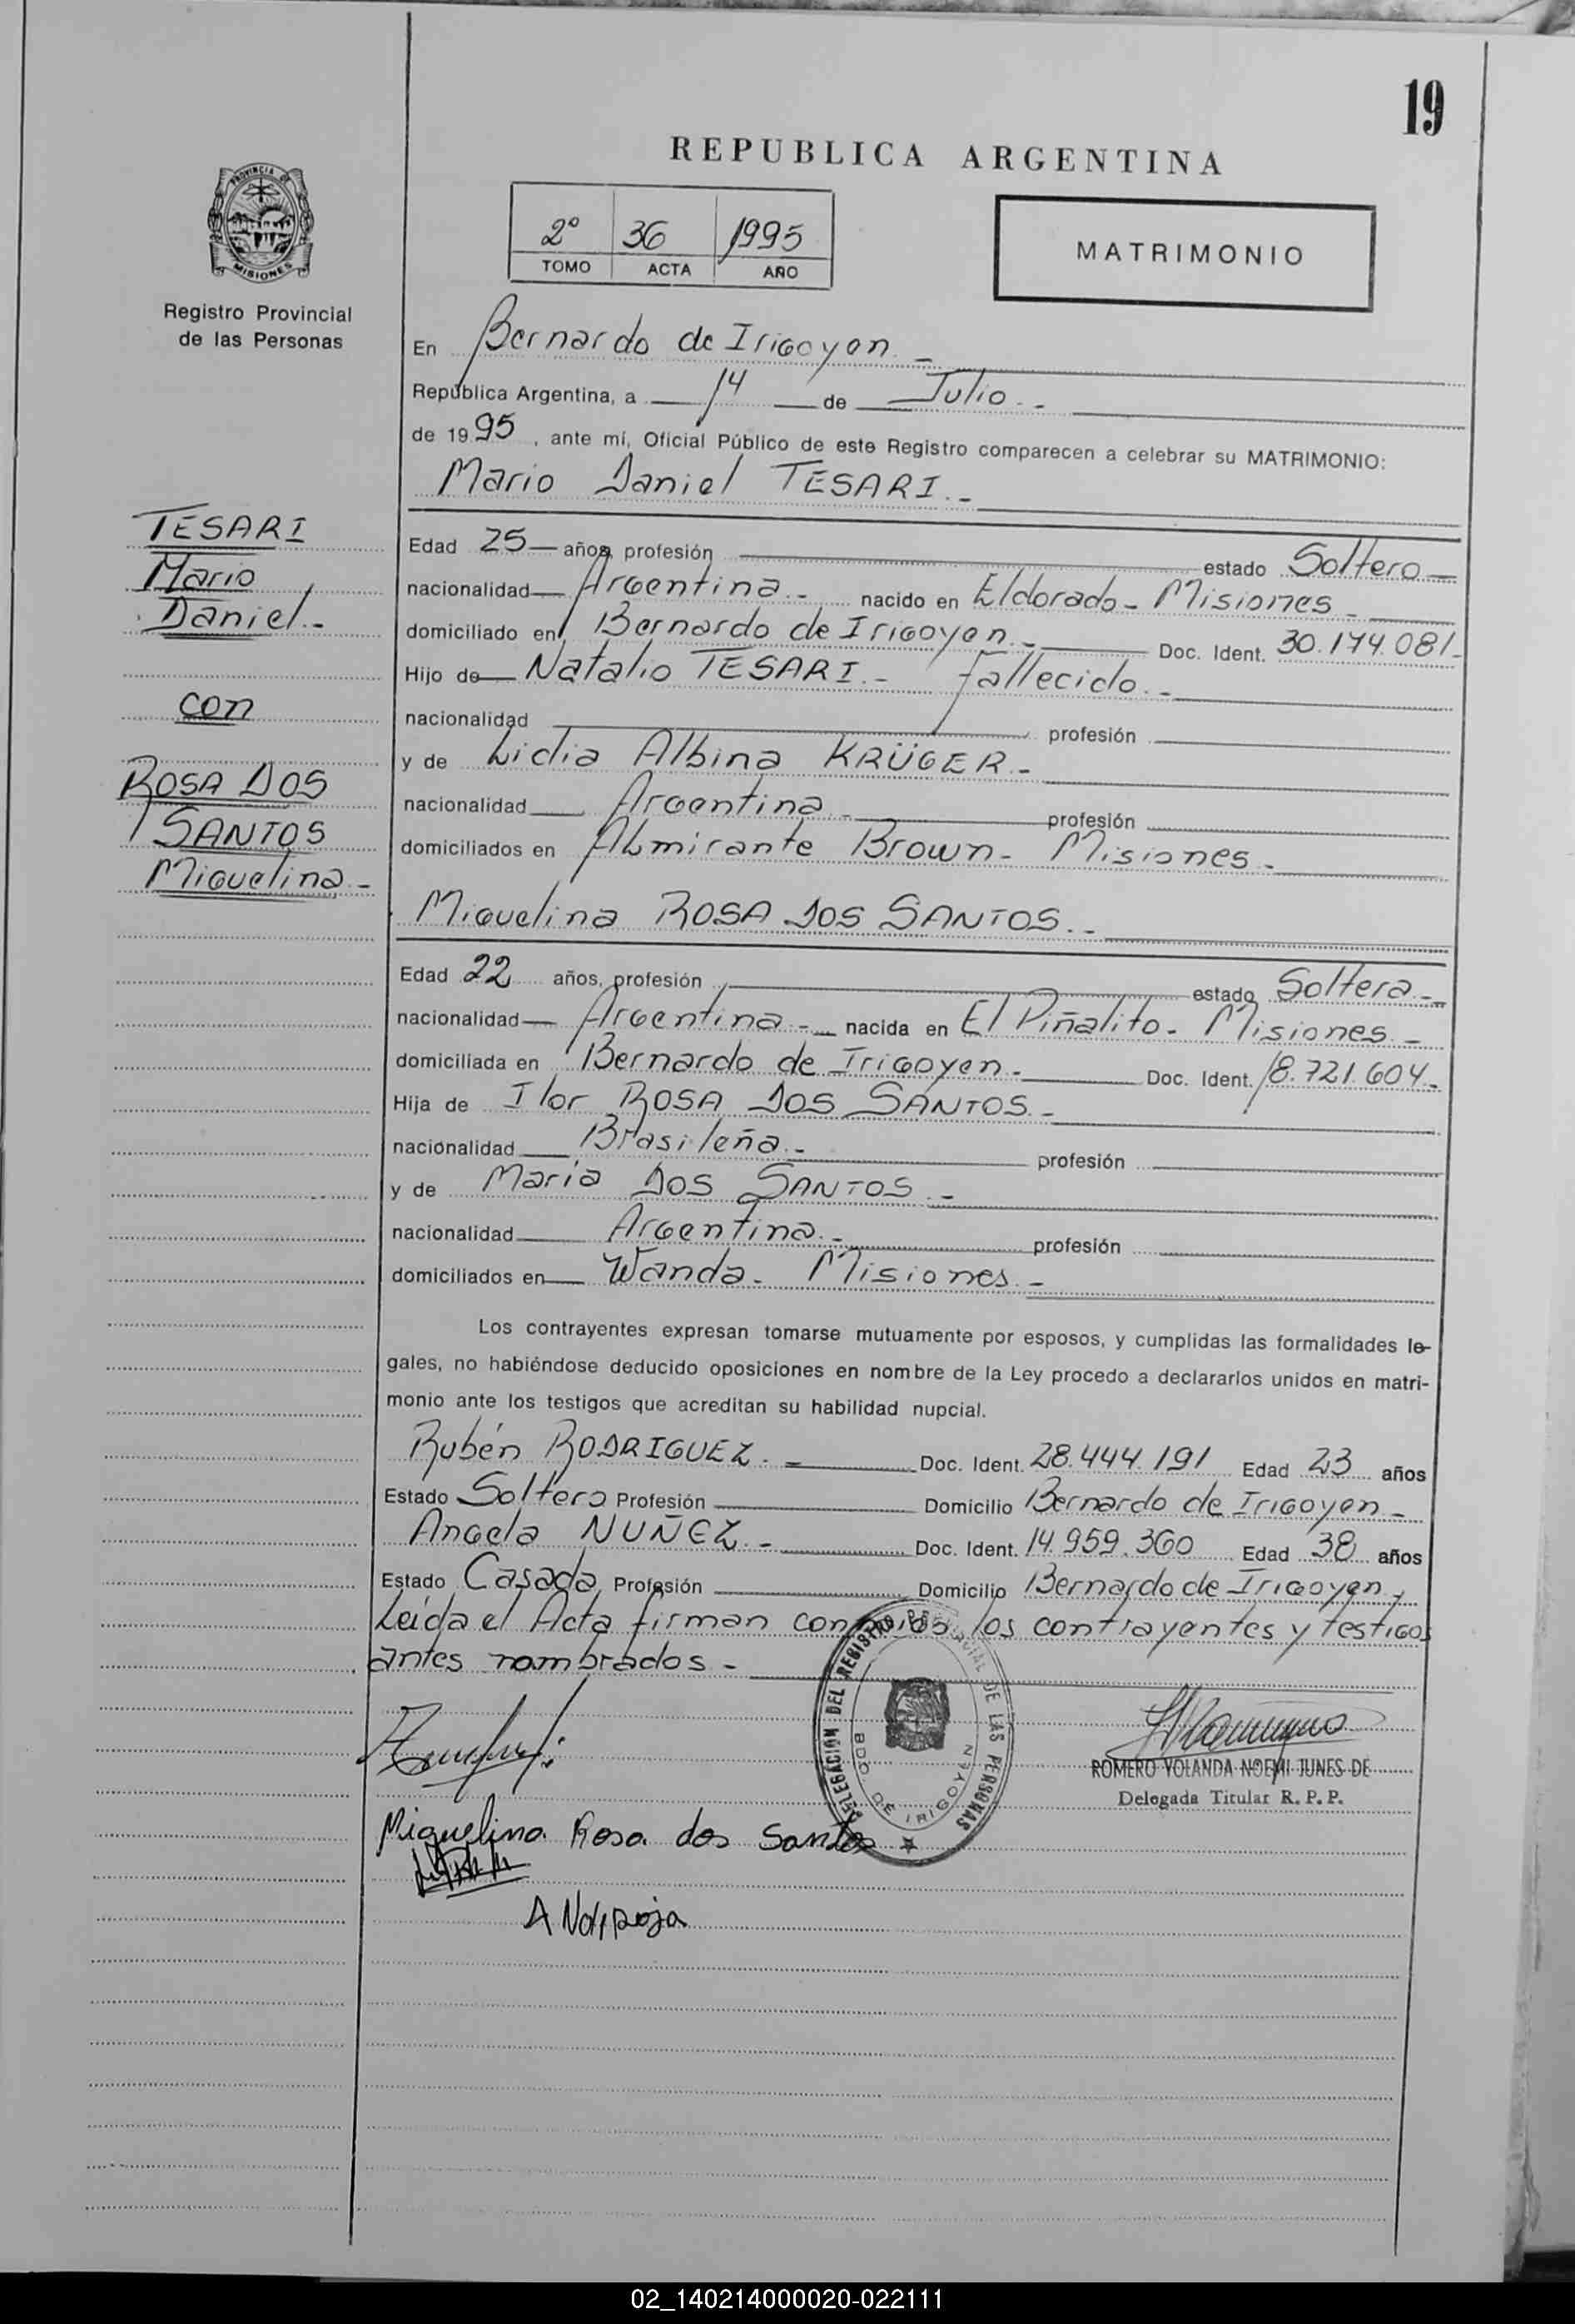 19
REPUBLICA ARGENTINA
PROVINCIA DE
MISIONES
Registro Provincial
de las Personas
2º 36 1995
TOMO ACTA AÑO
MATRIMONIO
En Bernardo de Irigoyen.-
República Argentina, a 14 de Julio.-
de 1995, ante mí, Oficial Público de este Registro comparecen a celebrar su MATRIMONIO:
Mario Daniel TESARI.-
TESARI
Mario
Daniel.-
con
ROSA DOS
SANTOS
Miguelina.-
Edad 25 años, profesión estado Soltero
nacionalidad Argentina.- nacido en Eldorado- Misiones.-
domiciliado en Bernardo de Irigoyen.- Doc. Ident. 30.174.081.-
Hijo de Natalio TESARI.- Fallecido.-
nacionalidad profesión
y de Lidia Albina KRÜGER.-
nacionalidad Argentina.- profesión
domiciliados en Almirante Brown- Misiones.-
Miguelina ROSA DOS SANTOS.-
Edad 22 años, profesión estado Soltera.-
nacionalidad Argentina.- nacida en El Piñalito- Misiones.-
domiciliada en Bernardo de Irigoyen.- Doc. Ident. 18.721.604.-
Hija de Ilor ROSA DOS SANTOS.-
nacionalidad Brasileña.- profesión
y de Maria DOS SANTOS.-
nacionalidad Argentina.- profesión
domiciliados en Wanda- Misiones.-
Los contrayentes expresan tomarse mutuamente por esposos, y cumplidas las formalidades le-
gales, no habiéndose deducido oposiciones en nombre de la Ley procedo a declararlos unidos en matri-
monio ante los testigos que acreditan su habilidad nupcial.
Rubén RODRIGUEZ.- Doc. Ident. 28.444.191 Edad 23 años
Estado Soltero Profesión Domicilio Bernardo de Irigoyen.-
Angela NUÑEZ.- Doc. Ident. 14.959.360 Edad 38 años
Estado Casada Profesión Domicilio Bernardo de Irigoyen,
Leída el Acta firman conmigo los contrayentes y testigos
antes nombrados.-
DELEGACION DEL REGISTRO PROVINCIAL DE LAS PERSONAS
BDO. DE IRIGOYEN
ROMERO YOLANDA NOEMI JUNES DE
Delegada Titular R. P. P.
Miguelina Rosa dos Santos
02_140214000020-022111